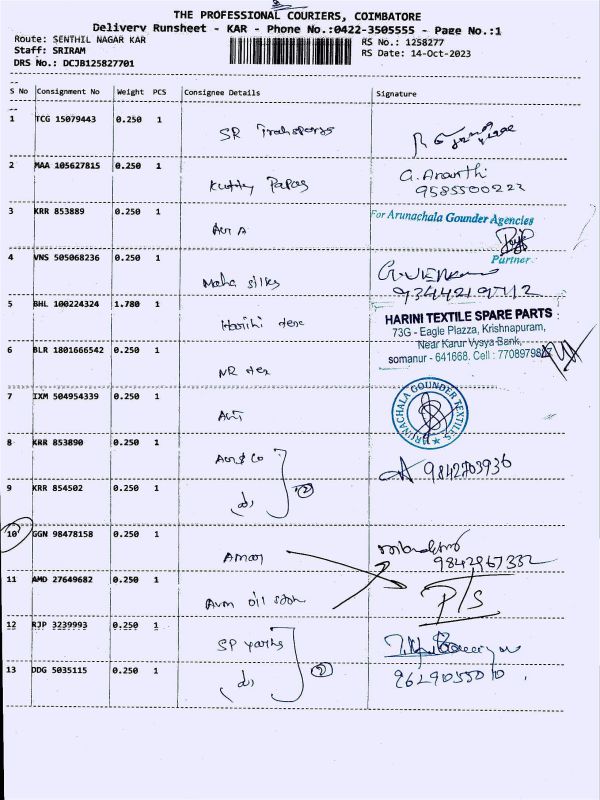 THE PROFESSIONAL COURIERS, COIMBATORE
Delivery Runsheet - KAR - Phone No.:0422-3505555 - Page No.:1
Route: SENTHIL NAGAR KAR
RS No.: 1258277
Staff: SRIRAM
RS Date: 14-Oct-2023
DRS No.: DCJB125827701
S No Consignment No Weight PCS Consignee Details Signature
1 TCG 15079443 0.250 1
SR Transports
2 MAA 105627815 0.250 1 G. Ananthi
Kutty Papas 9585500222
3 KRR 853889 0.250 1 For Arunachala Gounder Agencies
Partner
4 VNS 505068236 0.250 1
Maha silks
5 BHL 100224324 1.780 1 HARINI TEXTILE SPARE PARTS
73G - Eagle Plazza, Krishnapuram,
Near Karur Vysya Bank,
6 BLR 1801666542 0.250 1 somanur - 641668. Cell :
NR tex
7 IXM 504954339 0.250 1 ARUNACHALA GOUNDER TEXTILES
8 KRR 853890 0.250 1
9842703936
9 KRR 854502 0.250 1 (2)
10 GGN 98478158 0.250 1
9842967332
11 AMD 27649682 0.250 1 P/S
12 RJP 3239993 0.250 1
SP yarns
13 DDG 5035115 0.250 1 (2)